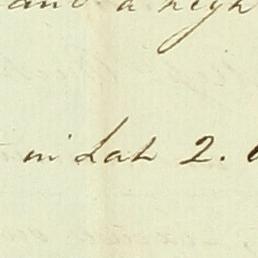 and a high
in Lat 2.